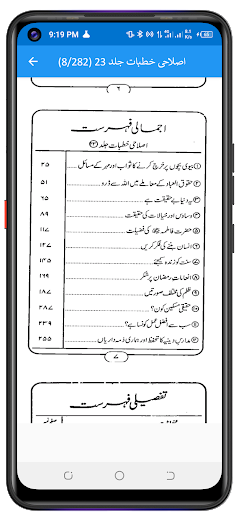 9:19 PM
اصلاحی خطبات جلد 23 (8/282)
٦
اجمالی فہرست
اصلاحی خطبات جلد ۲۳
① بیوی بچوں پر خرچ کرنے کا ثواب اور مہر کے مسائل ۲۵
② حقوق العباد کے معاملے میں اللہ سے ڈرو ۵۱
③ یہ دنیا بے حقیقت ہے
④ وساوس اور خیالات کی حقیقت ۸۹
⑤ حضرت فاطمہ کی فضیلت ۱۱۷
⑥ انسان بننے کی فکر کریں
⑦ سنت کو زندہ کیجئے ۱۴۵
⑧ انعامات رمضان پر شکر ۱۶۹
⑨ ظلم کی مختلف صورتیں
⑩ حقیقی مسکین کون؟
⑪ سب سے افضل عمل کونسا ہے؟ ۲۳۹
⑫ مدارس دینیہ کا تحفظ اور ہماری ذمہ داریاں ۲۵۵
۷
تفصیلی فہرست